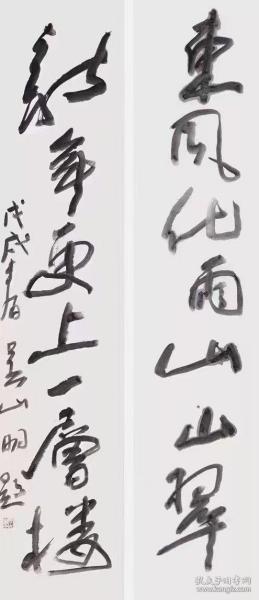 東風化雨山山翠
新年更上一層楼
戊戌年首 吴山明題
孔夫子旧书网